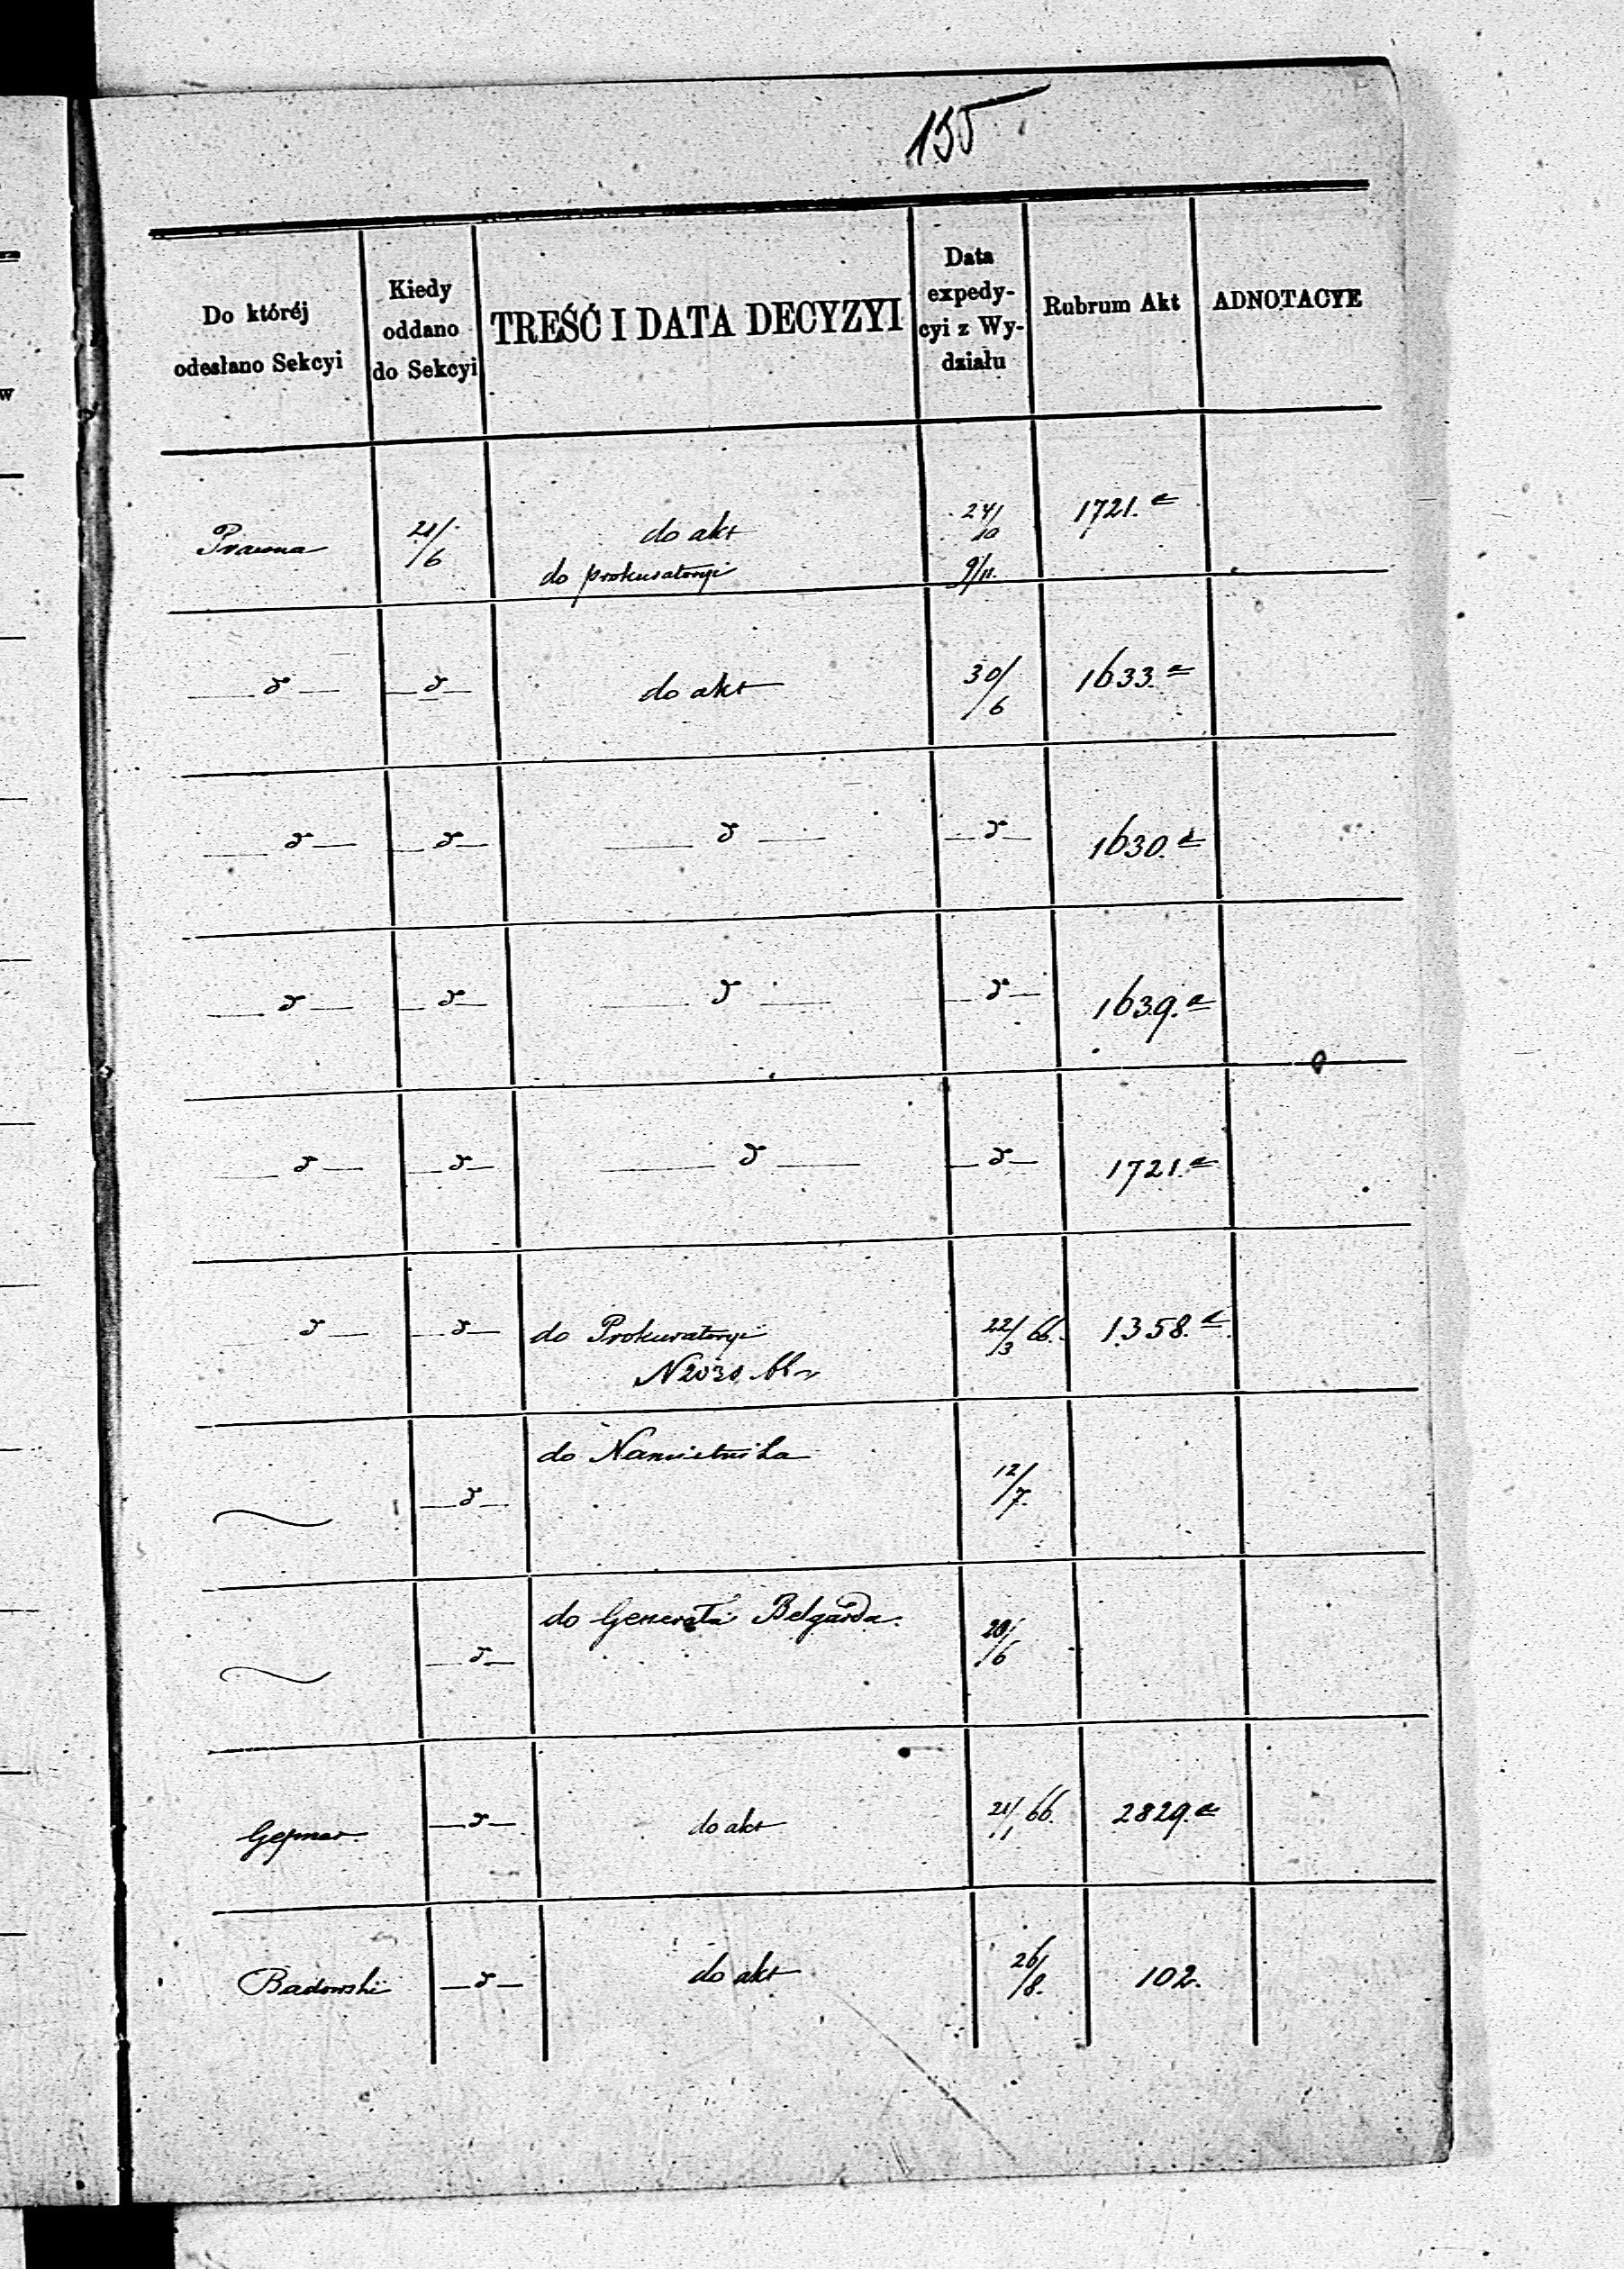 155
Do któréj
odesłano Sekcyi
Kiedy
oddano
do Sekcyi
TREŚĆ I DATA DECYZYI
Data
expedy-
cyi z Wy-
działu
Rubrum Akt
ADNOTACYE
Prawna 21/6 do akt 24/10 1721.a
do prokuratoryi 9/11.
— d — — d — do akt 30/6 1633.a
— d — — d — — d — — d — 1630.a
— d — — d — — d — — d — 1639.a
— d — — d — — d — — d — 1721.a
— d — — d — do Prokuratoryi 22/3 66. 1358.a
N 2030
do Namiestnika
— d — 12/7.
do Generała Belgarda.
— d — 20/6
— d — do akt 21/1 66. 2829.a
Badowski — d — do akt 26/8. 102.
w